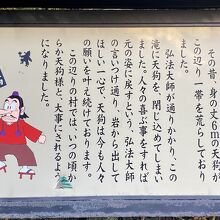 その昔、身の丈6mの天狗が
この辺り一帯を荒らしており
ました。
弘法大師が通りかかり、この
滝に天狗を、閉じ込めてしまい
ました。人々の喜ぶ事をすれば
元の姿に戻すという、弘法大師
の言いつけ通り、岩から出して
ほしい一心で、天狗は今も人々
の願いを叶え続けております。
この辺りの村では、いつの頃か
らか天狗様と、大事にされるよう
になりました。